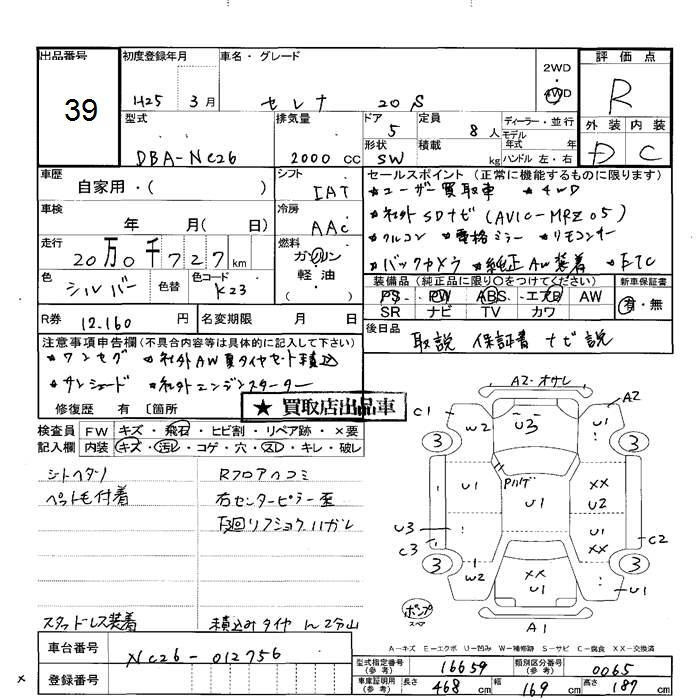 出品番号 初度登録年月 車名・グレード 2WD 評価点
39 H25 3月 セレナ 20S 4WD R
型式 排気量 ドア 定員 ディーラー・並行 外装 内装
5 8人 モデル年式 年 D C
DBA-NC26 2000cc 形状 積載 ハンドル 左・右
SW kg
車歴 シフト セールスポイント (正常に機能するものに限ります)
自家用・( ) IAT ★ユーザー買取車 ★4WD
車検 冷房 ★社外SDナビ(AVIC-MRZ05)
年 月( 日) AAC ★アルコン ★電格ミラー ★リモコンキー
走行 燃料 ★バックカメラ ★純正AW装着 ★ETC
20万0千727km ガソリン
色 シルバー 色替 色コード K23 軽油 ( ) 装備品 (純正品に限り○をつけてください) 新車保証書
PS PW ABS エアB AW 有・無
SR ナビ TV カワ
R券 12,160円 名変期限 月 日 後日品 取説 保証書 ナビ説
注意事項申告欄(不具合内容等は具体的に記入して下さい)
★ワンセグ ★社外AW夏タイヤセット積込
★サンシェード ★社外エンジンスターター
修復歴 有 〔箇所
★ 買取店出品車
検査員 FW キズ・飛石・ヒビ割・リペア跡・×要
記入欄 内装 キズ・汚レ・コゲ・穴・スレ・キレ・破レ
シートヘタリ Rフロアヘコミ
ペット毛付着 右センターピラー歪
下廻リフショクハガレ
スタッドレス装着 積込みタイヤ ん2分山
A2-オサレ
C1 W2 U3 A2
U1
3 3
U1 Pハゲ U1 XX U2
U3 C3 XX C2
3 3
W2 XX U1 U1
ポンプ スペア A1
A-キズ E-エクボ U-凹み W-補修跡 S-サビ C-腐食 XX-交換済
車台番号 NC26-012756
型式指定番号(参考) 16659 類別区分番号(参考) 0065
登録番号 車庫証明用(参考) 長さ 468cm 幅 169cm 高さ 187cm